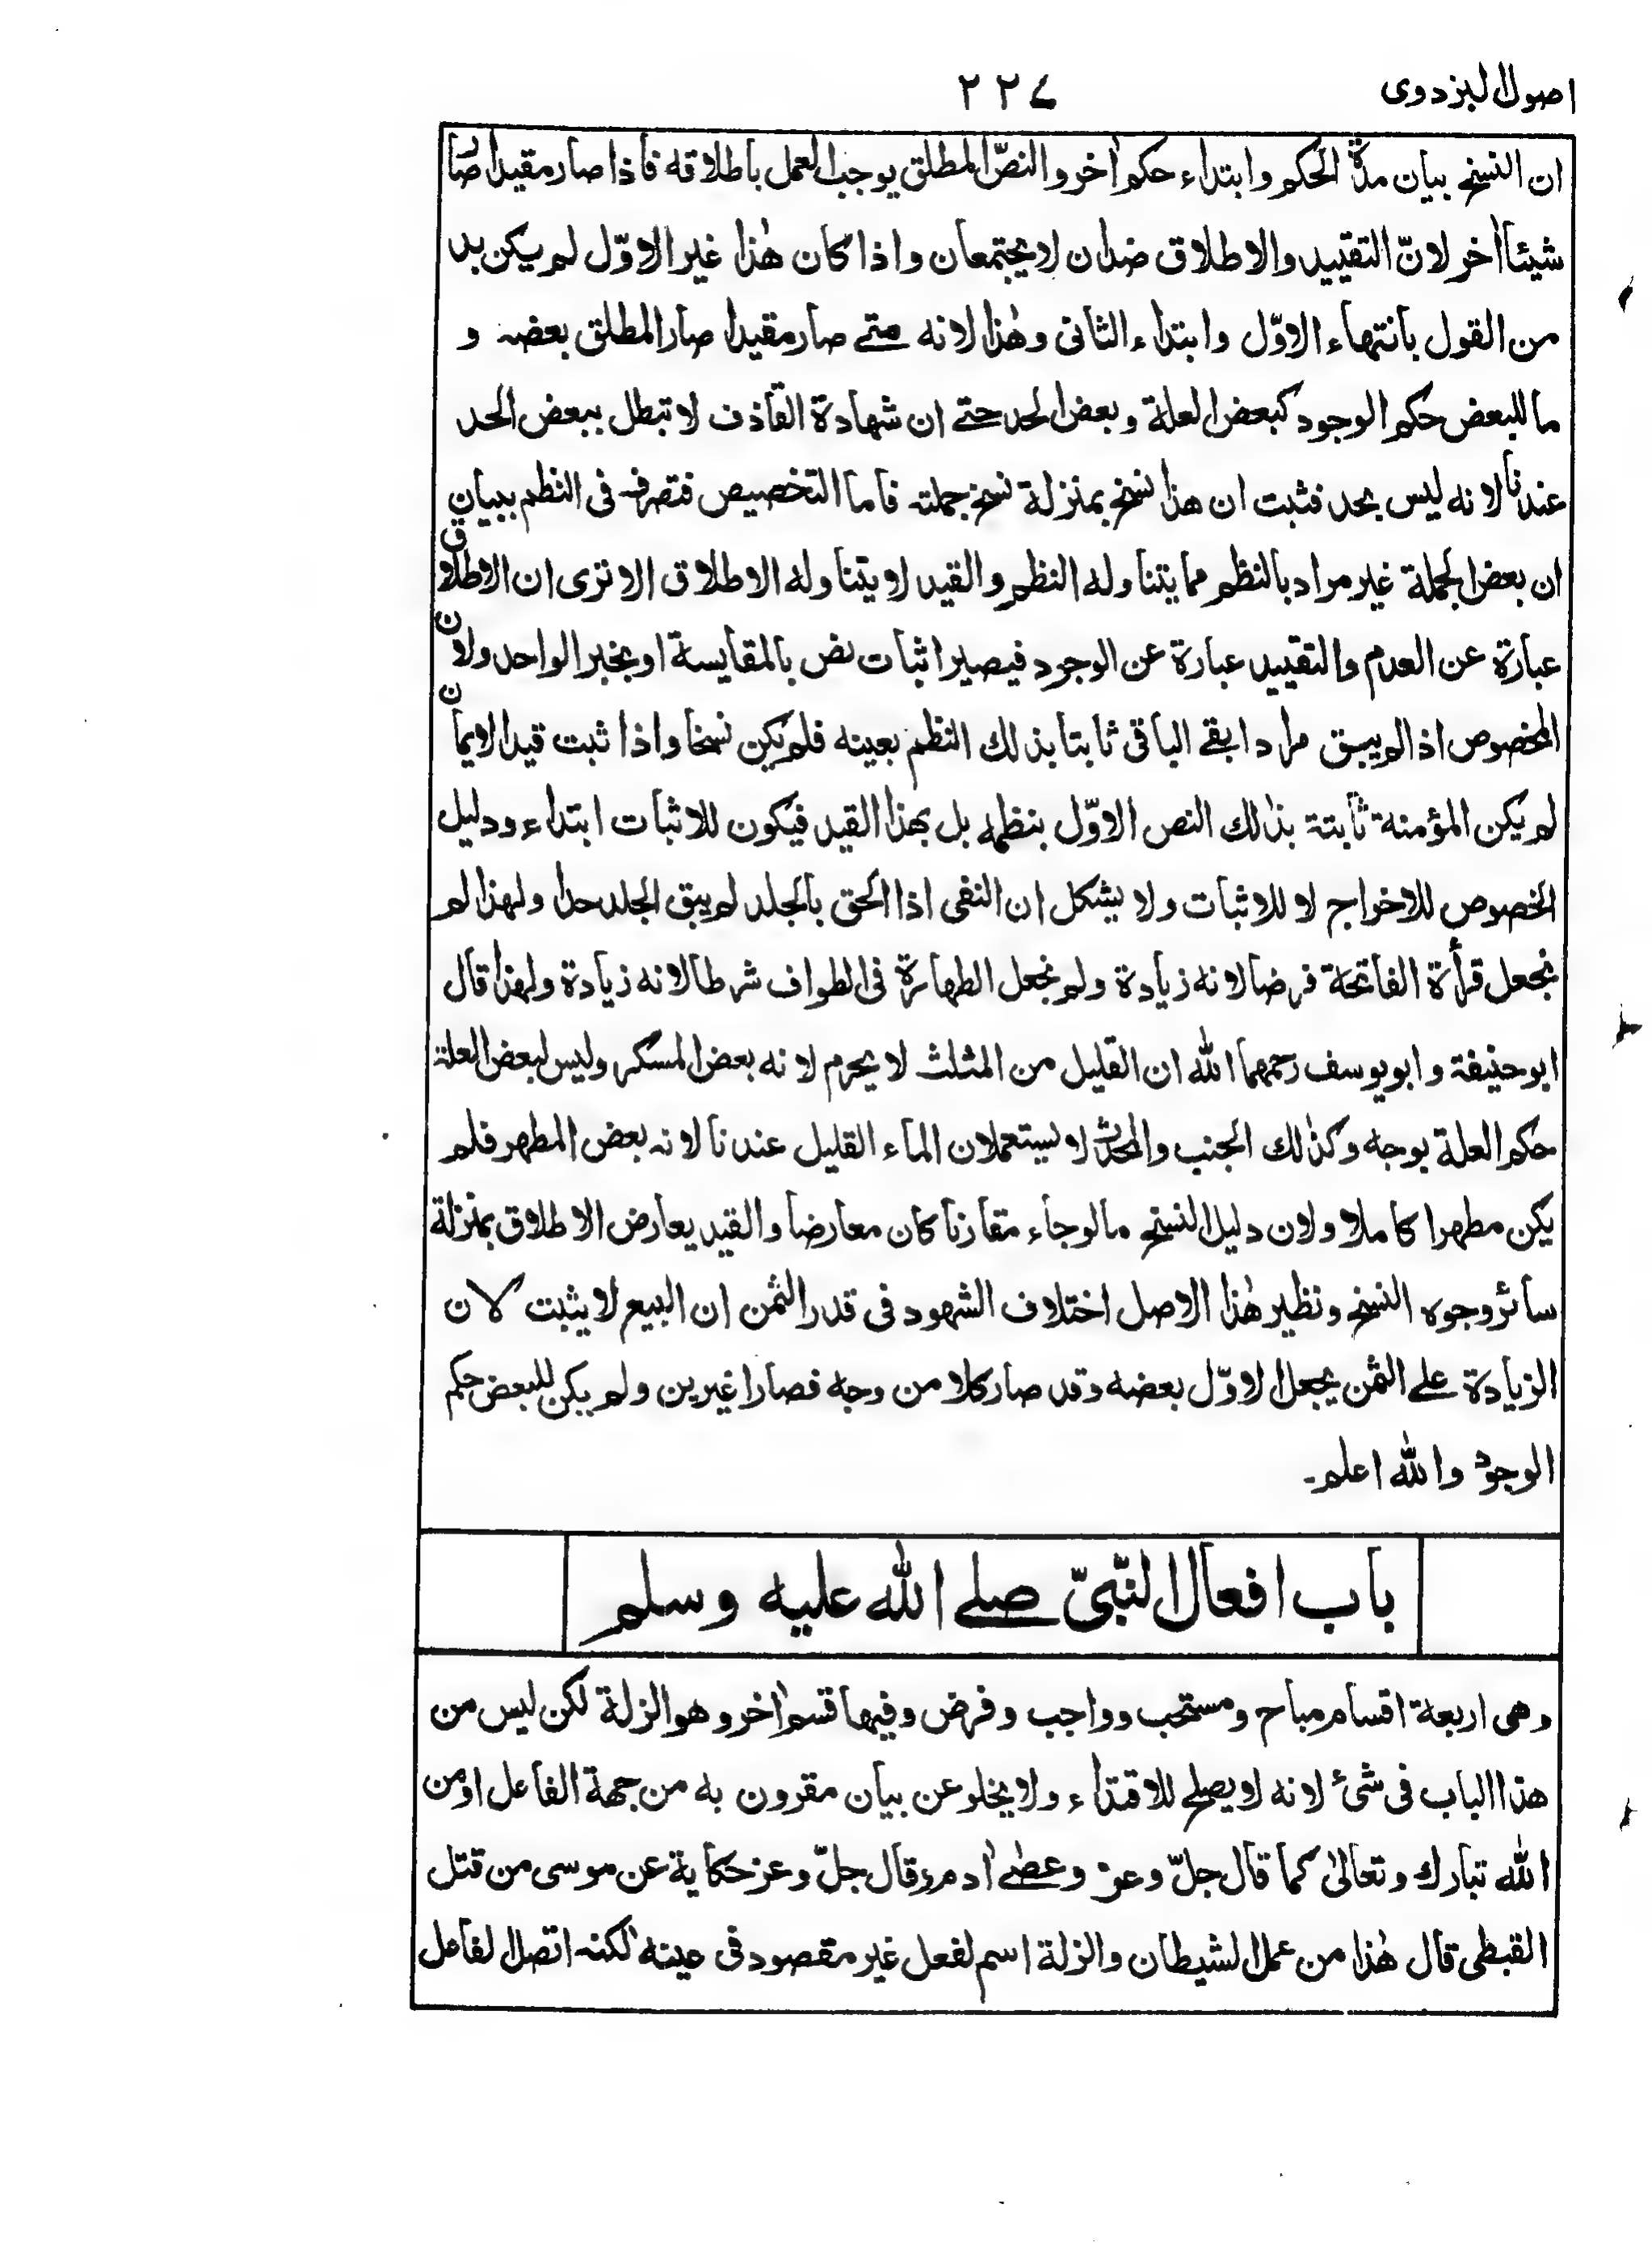 اصول البزدوی
٢٢٧
ان النسخ بیان مدة الحکم وابتداء حکم اٰخر والنصّ المطلق یوجب العمل باطلاقه فاذا صار مقیدا صار
شیئا اٰخر لانّ التقیید والاطلاق ضدان لا یجتمعان واذا کان هٰذا غیر الاوّل لم یکن بد
من القول بانتهاء الاوّل وابتداء الثانی وهٰذا لانه متے صار مقیدا صار المطلق بعضه و
ما للبعض حکم الوجود کبعض العلة وبعض الحد حتے ان شهادة القاذف لا تبطل ببعض الحد
عندنا لانه لیس بحد فثبت ان هذا نسخ بمنزلة نسخ جملته فاما التخصیص فتصرف فی النظم ببیان
ان بعض الجملة غیر مراد بالنظم مما یتناوله النظم والقید لا یتناوله الاطلاق الا تری ان الاطلاق
عبارة عن العدم والتقیید عبارة عن الوجود فیصیر اثبات نص بالمقایسة او بخبر الواحد ولان
المخصوص اذا لم یبق مرادا بقے الباقی ثابتا بذلك النظم بعینه فلم یکن نسخا واذا ثبت قید الایمان
لم یکن المؤمنة ثابتة بذٰلك النص الاوّل بنظمه بل بهذا القید فیکون للاثبات ابتداء ودلیل
الخصوص للاخراج لا للاثبات ولا یشکل ان النفی اذا الحق بالجلد لم یبق الجلد حدا ولهذا لم
نجعل قرأة الفاتحة فرضا لانه زیادة ولم نجعل الطهارة فی الطواف شرطا لانه زیادة ولهذا قال
ابو حنیفة وابو یوسف رحمهما الله ان القلیل من المثلث لا یحرم لانه بعض المسکر ولیس لبعض العلة
حکم العلة بوجه وکذٰلك الجنب والمحدث لا یستعملان الماء القلیل عندنا لانه بعض المطهر فلم
یکن مطهرا کاملا ولان دلیل النسخ ما لو جاء مقارنا کان معارضا والقید یعارض الاطلاق بمنزلة
سائر وجوه النسخ ونظیر هٰذا الاصل اختلاف الشهود فی قدر الثمن ان البیع لا یثبت لان
الزیادة علے الثمن یجعل الاوّل بعضه وقد صار کلا من وجه فصارا غیرین ولم یکن للبعض حکم
الوجود والله اعلم۔
باب افعال النّبیّ صلے الله علیه وسلم
وهی اربعة اقسام مباح ومستحب وواجب وفرض وفیها قسم اٰخر وهو الزلة لکن لیس من
هذا الباب فی شیٔ لانه لا یصلح للاقتداء ولا یخلو عن بیان مقرون به من جهة الفاعل او من
الله تبارك وتعالیٰ کما قال جلّ وعزّ وعصٰے اٰدم وقال جلّ وعز حکایة عن موسی من قتل
القبطی قال هٰذا من عمل الشیطان والزلة اسم لفعل غیر مقصود فی عینه لٰکنه اتصل الفاعل